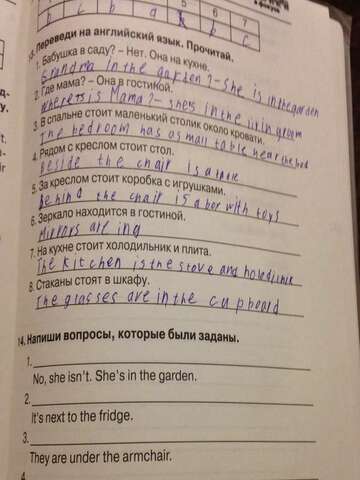 5 6 7
b c b a b b c
13. Переведи на английский язык. Прочитай.
1. Бабушка в саду? – Нет. Она на кухне.
Grandma In the garden? – She is inthegarden
2. Где мама? – Она в гостиной.
Wheresis Mama? – she's in the
3. В спальне стоит маленький столик около кровати.
The bedroom has asmall table near the bed
4. Рядом с креслом стоит стол.
Beside the chair is a
5. За креслом стоит коробка с игрушками.
Behind the chair is a box with toys
6. Зеркало находится в гостиной.
Mirrors are ing
7. На кухне стоит холодильник и плита.
The kitchen is the stove and
8. Стаканы стоят в шкафу.
The glasses are in the cupboard
14. Напиши вопросы, которые были заданы.
1.
No, she isn't. She's in the garden.
2.
It's next to the fridge.
3.
They are under the armchair.
4.